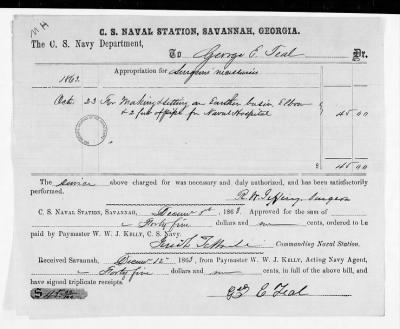 C. S. NAVAL STATION, SAVANNAH, GEORGIA.
The C. S. Navy Department,
To George E. Teal Dr.
Appropriation for Surgeons necessaries
186
Oct 23 For Making & setting an Earthen basin, Elbow
& 2 feet of pipe for Naval Hospital 45 00
$ 45 00
The service above charged for was necessary and duly authorized, and has been satisfactorily
performed.
R. W. Jeffery, Surgeon
C. S. NAVAL STATION, SAVANNAH, 186 Approved for the sum of
Forty five dollars and no cents, ordered to be
paid by Paymaster W. W. J. KELLY, C. S. Navy.
Commanding Naval Station.
Received Savannah, Decem 12th 1863, from Paymaster W. W. J. KELLY, Acting Navy Agent,
Forty five dollars and no cents, in full of the above bill, and
have signed triplicate receipts.
$ 45
E Teal